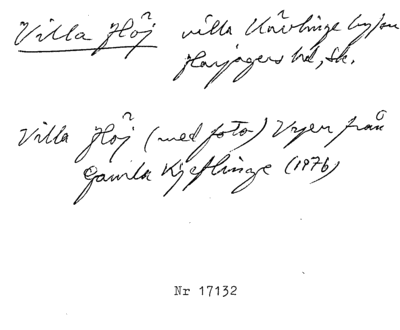 Villa Höj villa Kävlinge by/sn
Harjagers hd, Sk.
Villa Höj (med foto) Vyer från
Gamla Kjeflinge (1976)
Nr 17132